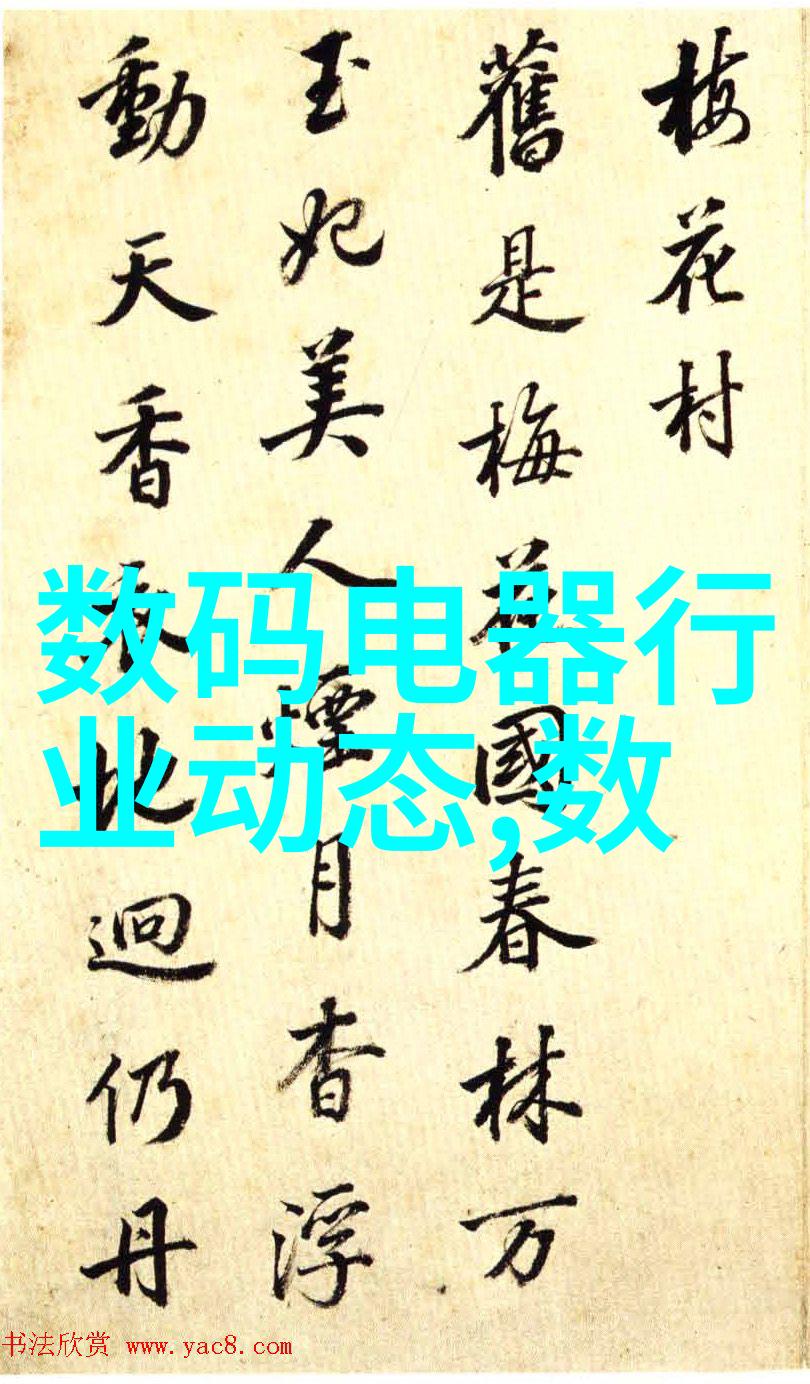 梅花村
舊是梅花國春林万
玉妃美人煙月杳浮
動天香地迥仍丹
数码电器行
业动态,数
书法欣赏 www.yac8.com